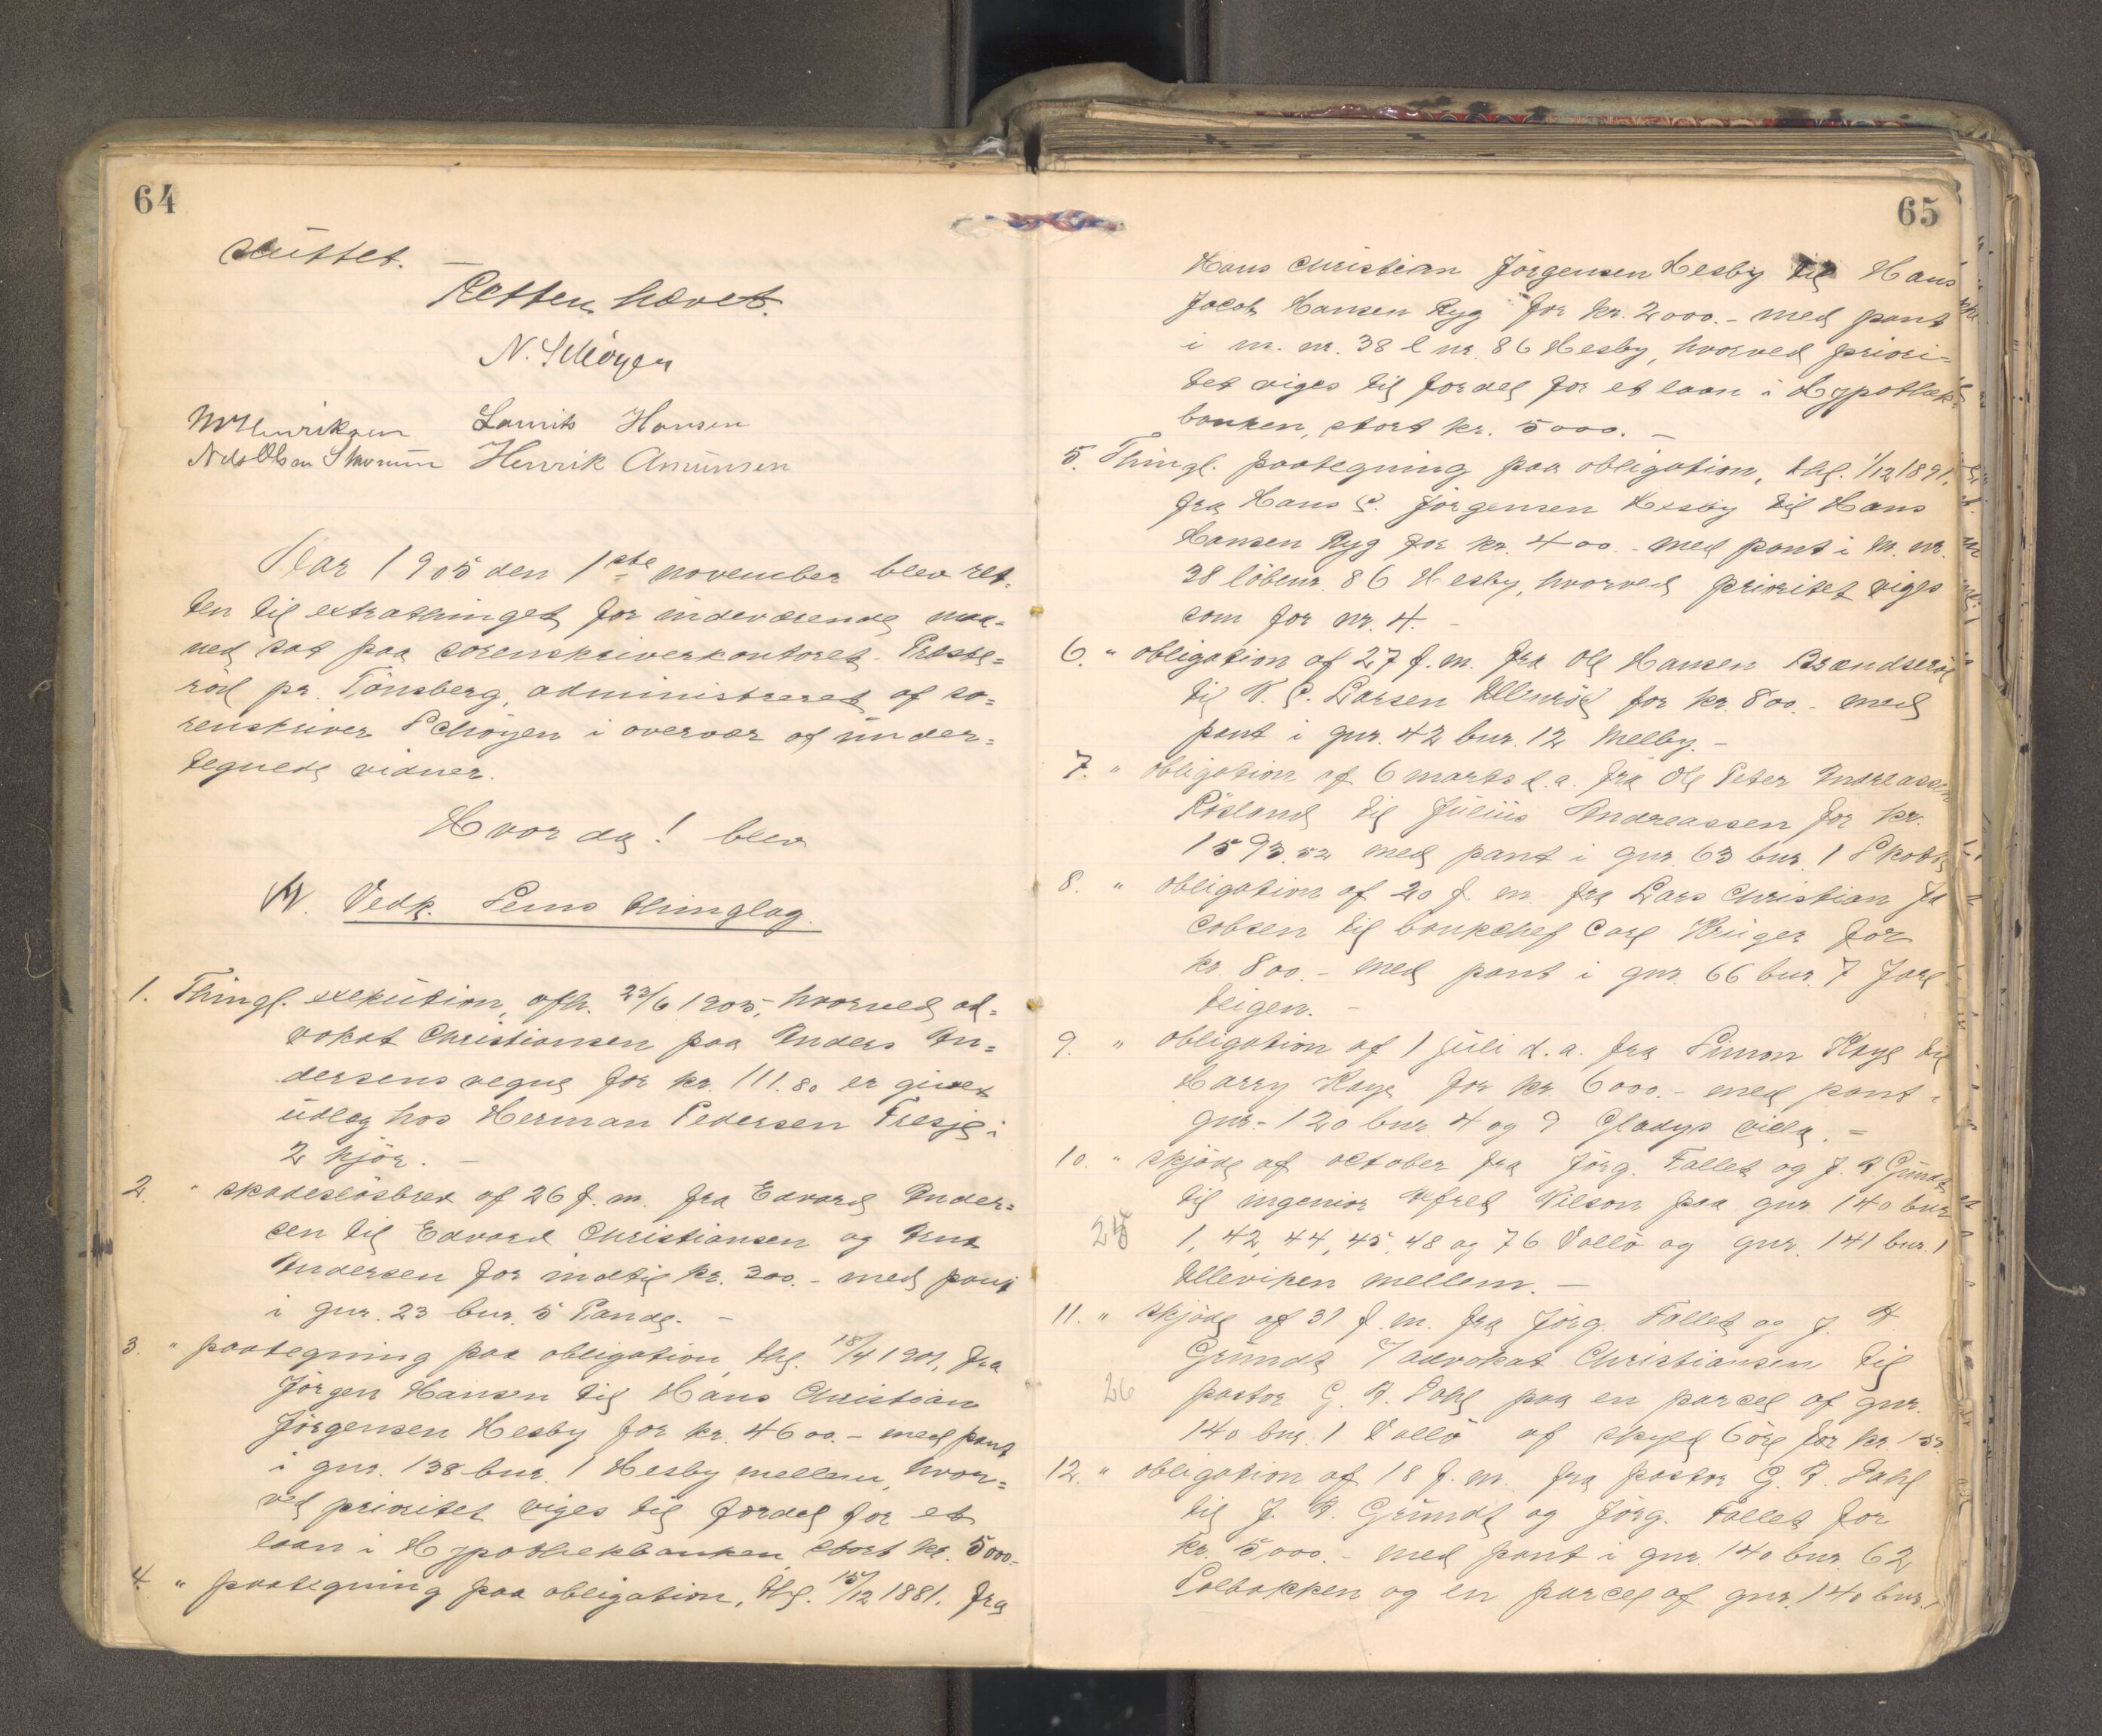 64
sluttet. —
Retten hævet.
N. Schöyen
M Henriksen Laurits Hansen
Nils Olsen Henrik Amunsen
Aar 1905 den 1ste november blev ret-
ten til extrathinget for indeværende maa-
ned sat paa sorenskriverkontoret Præste-
röd pr. Tönsberg, administreret af so-
renskriver Schöyen i overvær af under-
tegnede vidner.
Hvor da! blev
A. Vedk. Sems thinglag.
1. Thingl. exekution, afh. 22/6 1905, hvorved ad-
vokat Christiansen paa Anders An-
dersens vegne for kr. 111.80 er givet
udlæg hos Herman Pedersen Tresje i
2 kjör. —
2. " skadeslösbrev af 26 f. m. fra Edvard Ander-
sen til Edvard Christiansen og Knut
Andersen for indtil kr. 300.- med pant
i gnr. 23 bnr. 5 Rande. —
3. " paategning paa obligation, thl. 18/4 1901, fra
Jörgen Hansen til Hans Christian
Jörgensen Hesby for kr. 4600.- med pant
i gnr. 138 bnr. 1 Hesby mellem, hvor-
ved prioritet viges til fordel for et
laan i Hypothekbanken, stort kr. 5000.-
4. " paategning paa obligation, thl. 15/12 1881. fra
65
Hans Christian Jörgensen Hesby til Hans
Jacob Hansen Ryg for kr. 2000.- med pant
i m. nr. 38 l nr. 86 Hesby, hvorved priori-
tet viges til fordel for et laan i Hypothek-
banken, stort kr. 5000. —
5. Thingl. paategning paa obligation, thl. 1/12 1891,
fra Hans C. Jörgensen Hesby til Hans
Hansen Ryg for kr. 400.- med pant i m. nr.
38 löbenr. 86 Hesby, hvorved prioritet viges
som for nr. 4. -
6. " obligation af 27 f. m. fra Ole Hansen Brændseröd
til C. Larsen for kr. 800.- med
pant i gnr. 42 bnr. 12 Melby. -
7. " obligation af 6 marts d. a. fra Ole Peter Andreassen
Rösland til Julius Andreassen for kr.
1593.52 med pant i gnr. 63 bnr. 1
8. " obligation af 20 f. m. fra Lars Christian Ja
cobsen til bankchef Carl Krüger for
kr. 800.- med pant i gnr. 66 bnr. 7 Jare
teigen. -
9. " obligation af 1 juli d. a. fra Simon Kaye til
Harry Kaye for kr. 6000.- med pant i
gnr. 120 bnr. 4 og 9 Gladys villa. -
10. " skjöde af october fra Jörg. Følled og J. A Grundt
til ingeniör Alfred Wilson paa gnr. 140 bnr
25 1, 42, 44, 45, 48 og 76 Vallö og gnr. 141 bnr. 1
Ulleviken mellem. —
11. " skjöde af 31 f. m. fra Jörg. Følled og J. A.
Grundt v/ advokat Christiansen til
26 pastor G. A. Dahl paa en parcel af gnr.
140 bnr. 1 Vallö af skyld 6 öre for kr. 150
12. " obligation af 18 f. m. fra pastor G. A. Dahl
til J. A. Grundt og Jörg. Følled for
kr. 5000.- med pant i gnr. 140 bnr. 62
Solbakken og en parcel af gnr. 140 bnr. 1